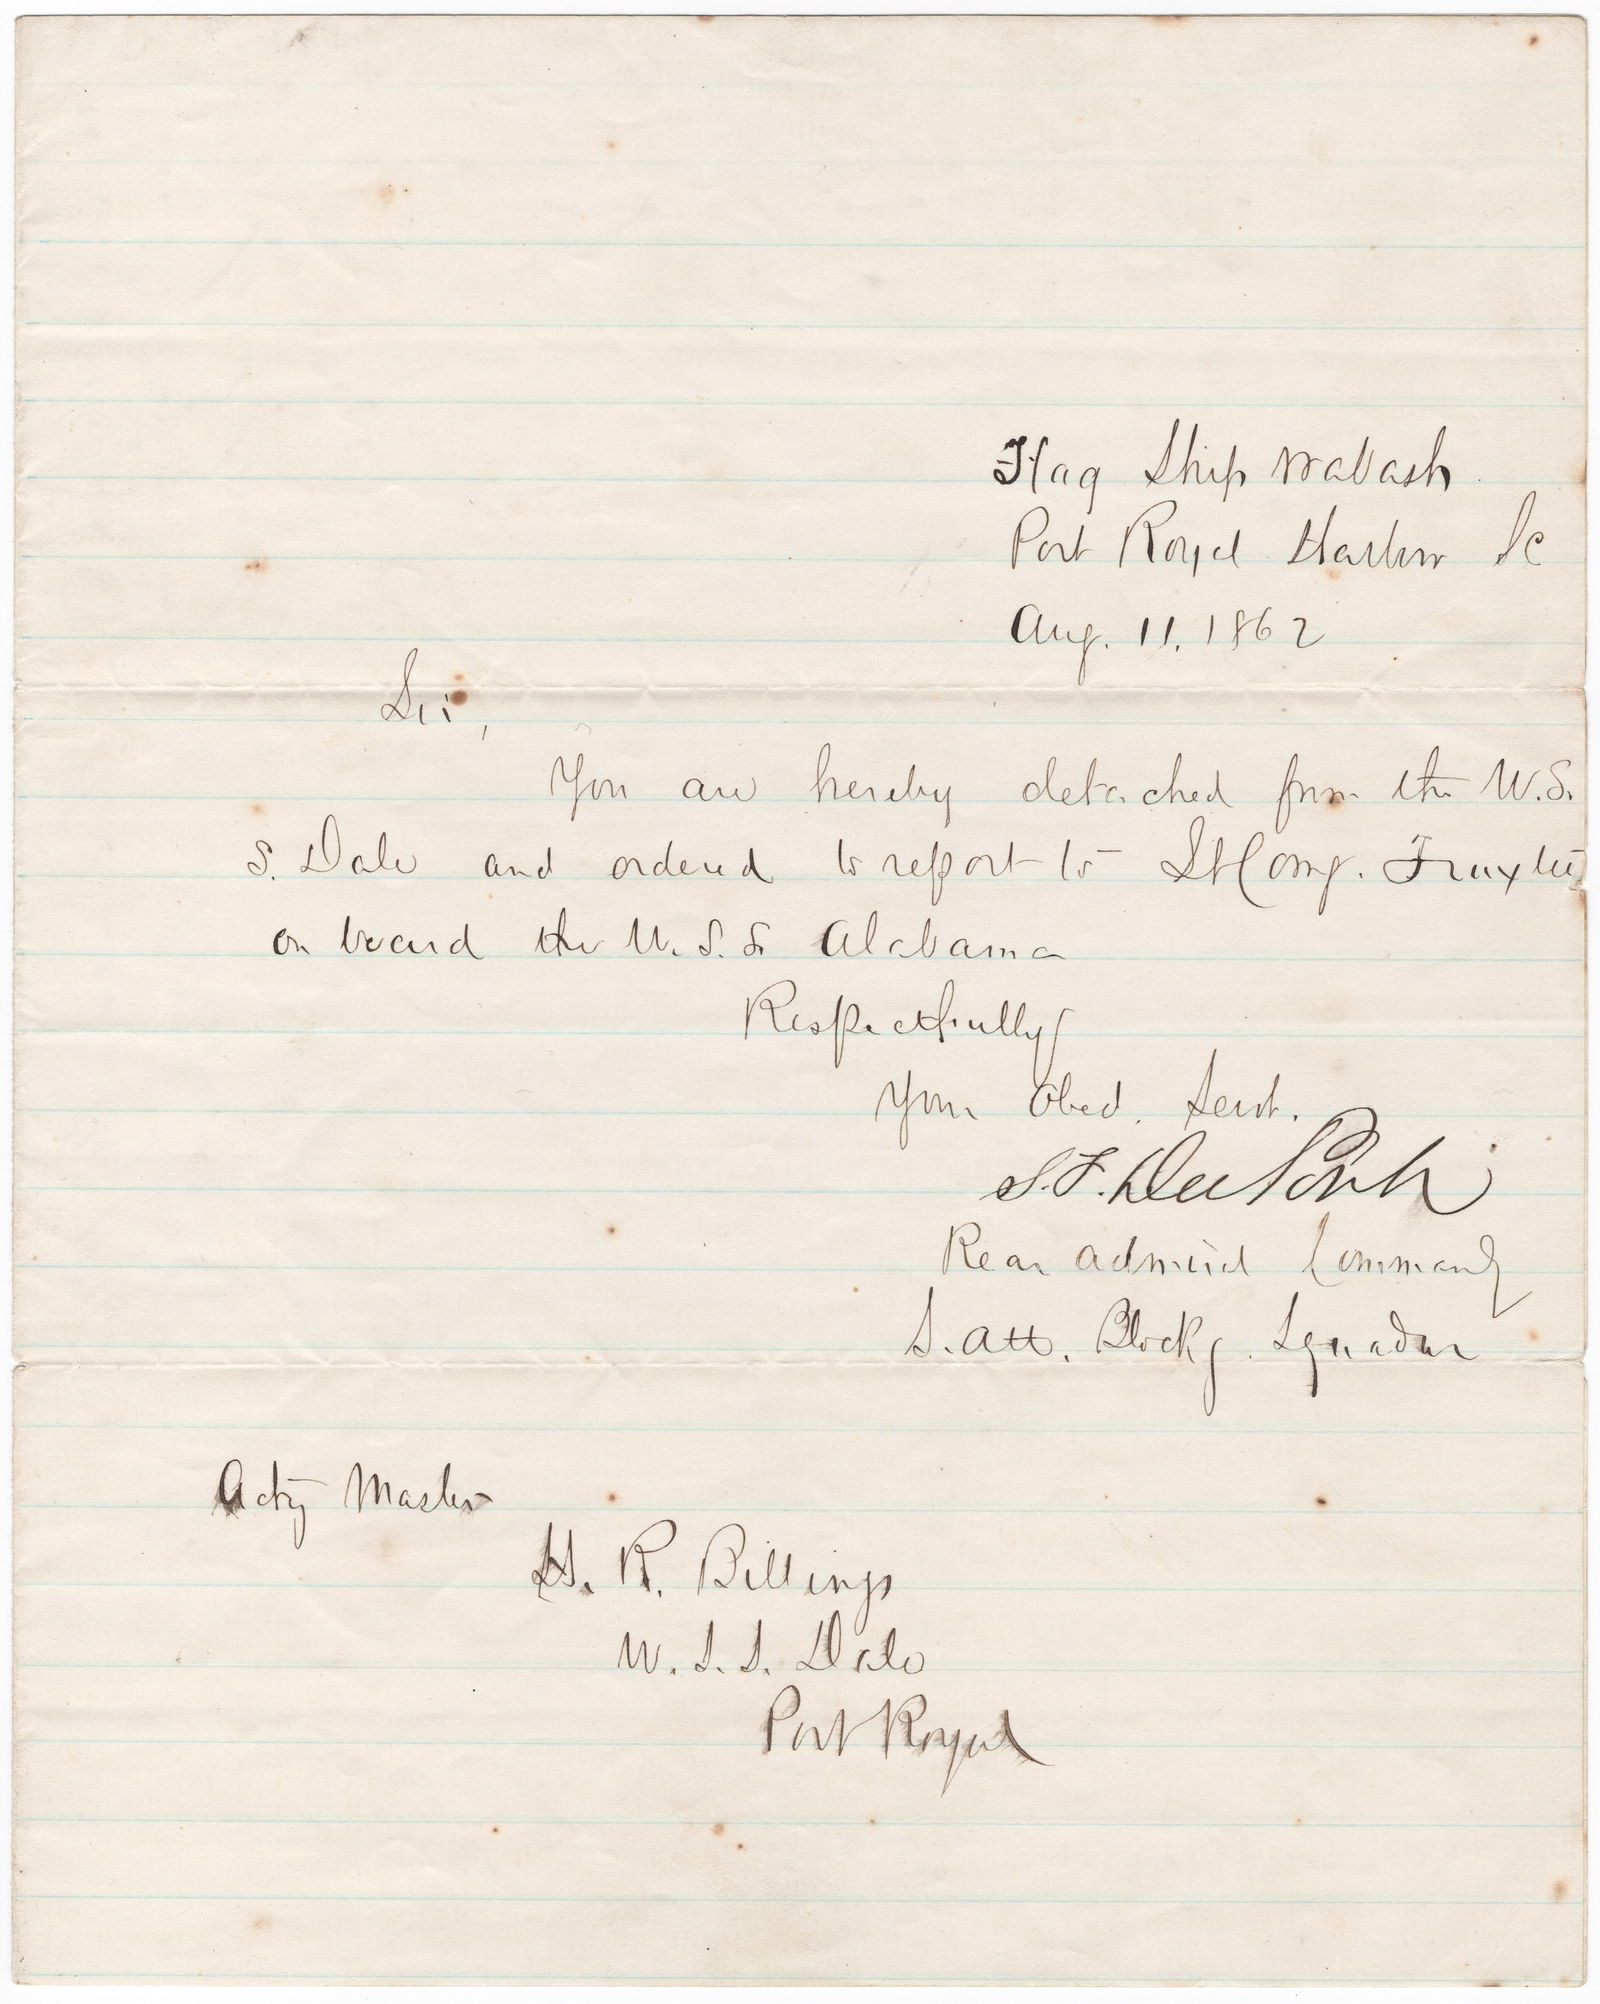 Flag Ship Wabash
Port Royal Harbor SC
Aug. 11. 1862
Sir,
You are hereby detached from the U.S.
S. Dale and ordered to report to Lt Comg. Truxtun
on board the U.S.S. Alabama
Respectfully
Your Obed. Servt.
S.F. Du Pont
Rear Admiral Commandg
S. Att. Blockg. Squadron
Actg Master
H. R. Billings
U.S.S. Dale
Port Royal